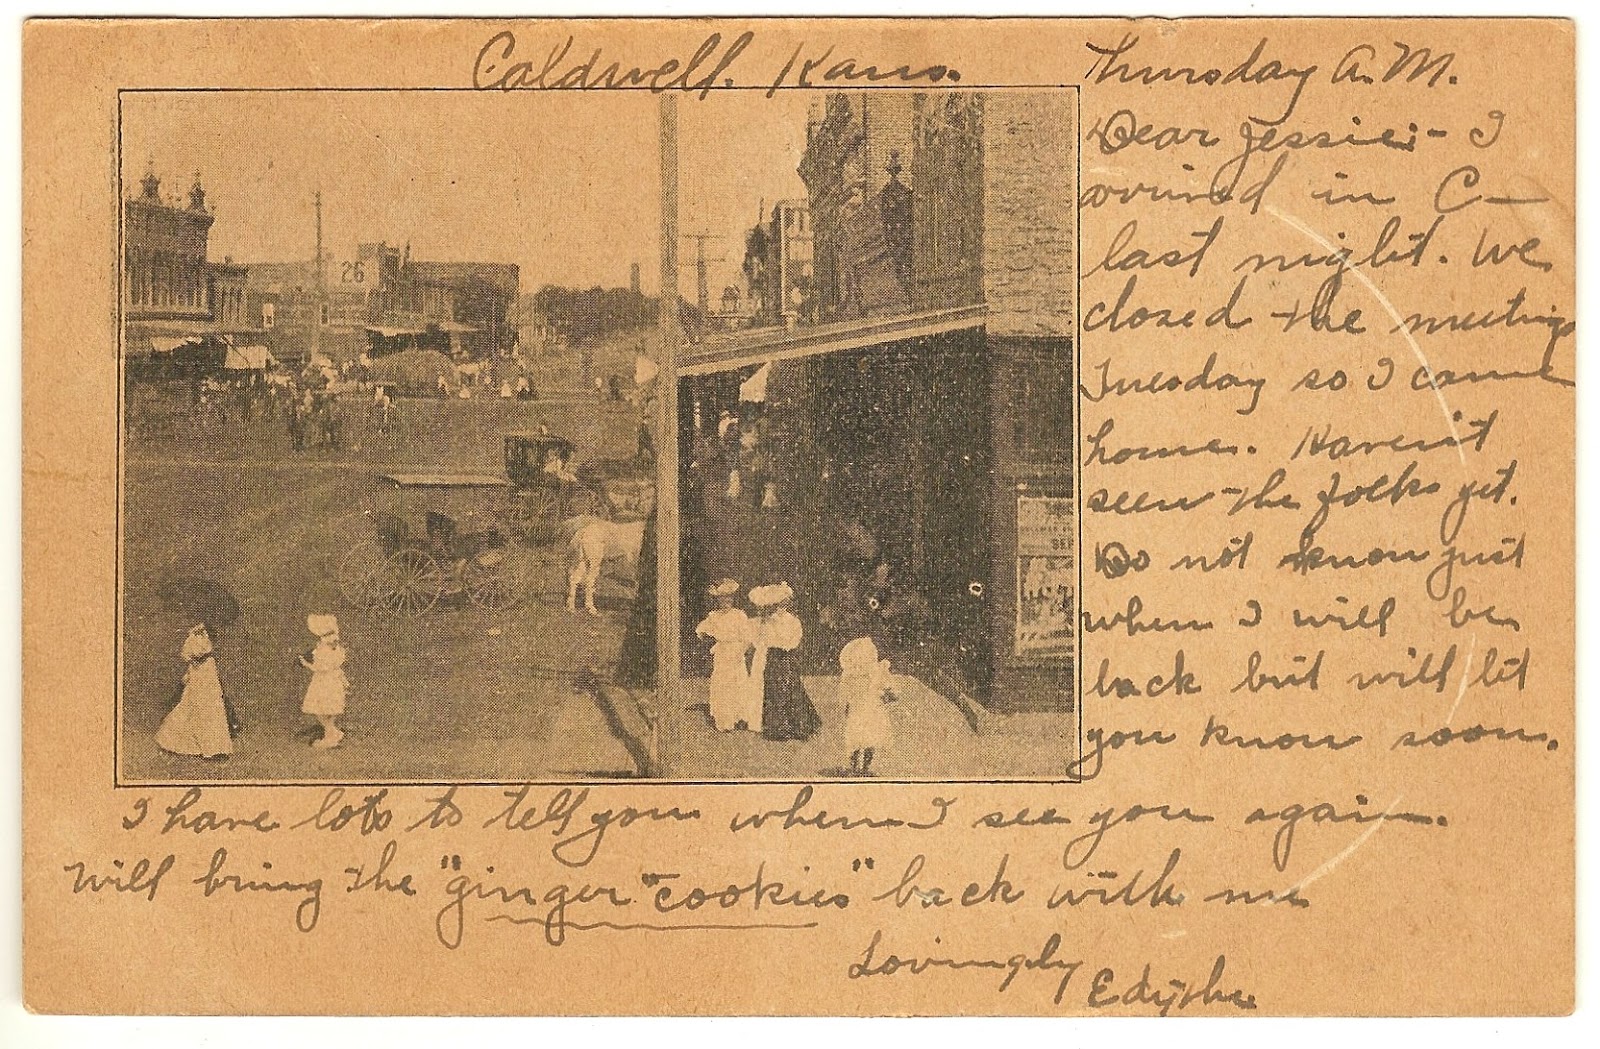 Caldwell. Kans.
Thursday A.M.
Dear Jessie:- I
arrived in C—
last night. We
closed the meetings
Tuesday so I came
home. Haven't
seen the folks yet.
Do not know just
when I will be
back but will let
you know soon.
I have lots to tell you when I see you again.
Will bring the "ginger "cookies" back with me
Lovingly
Edythe
26
SEP